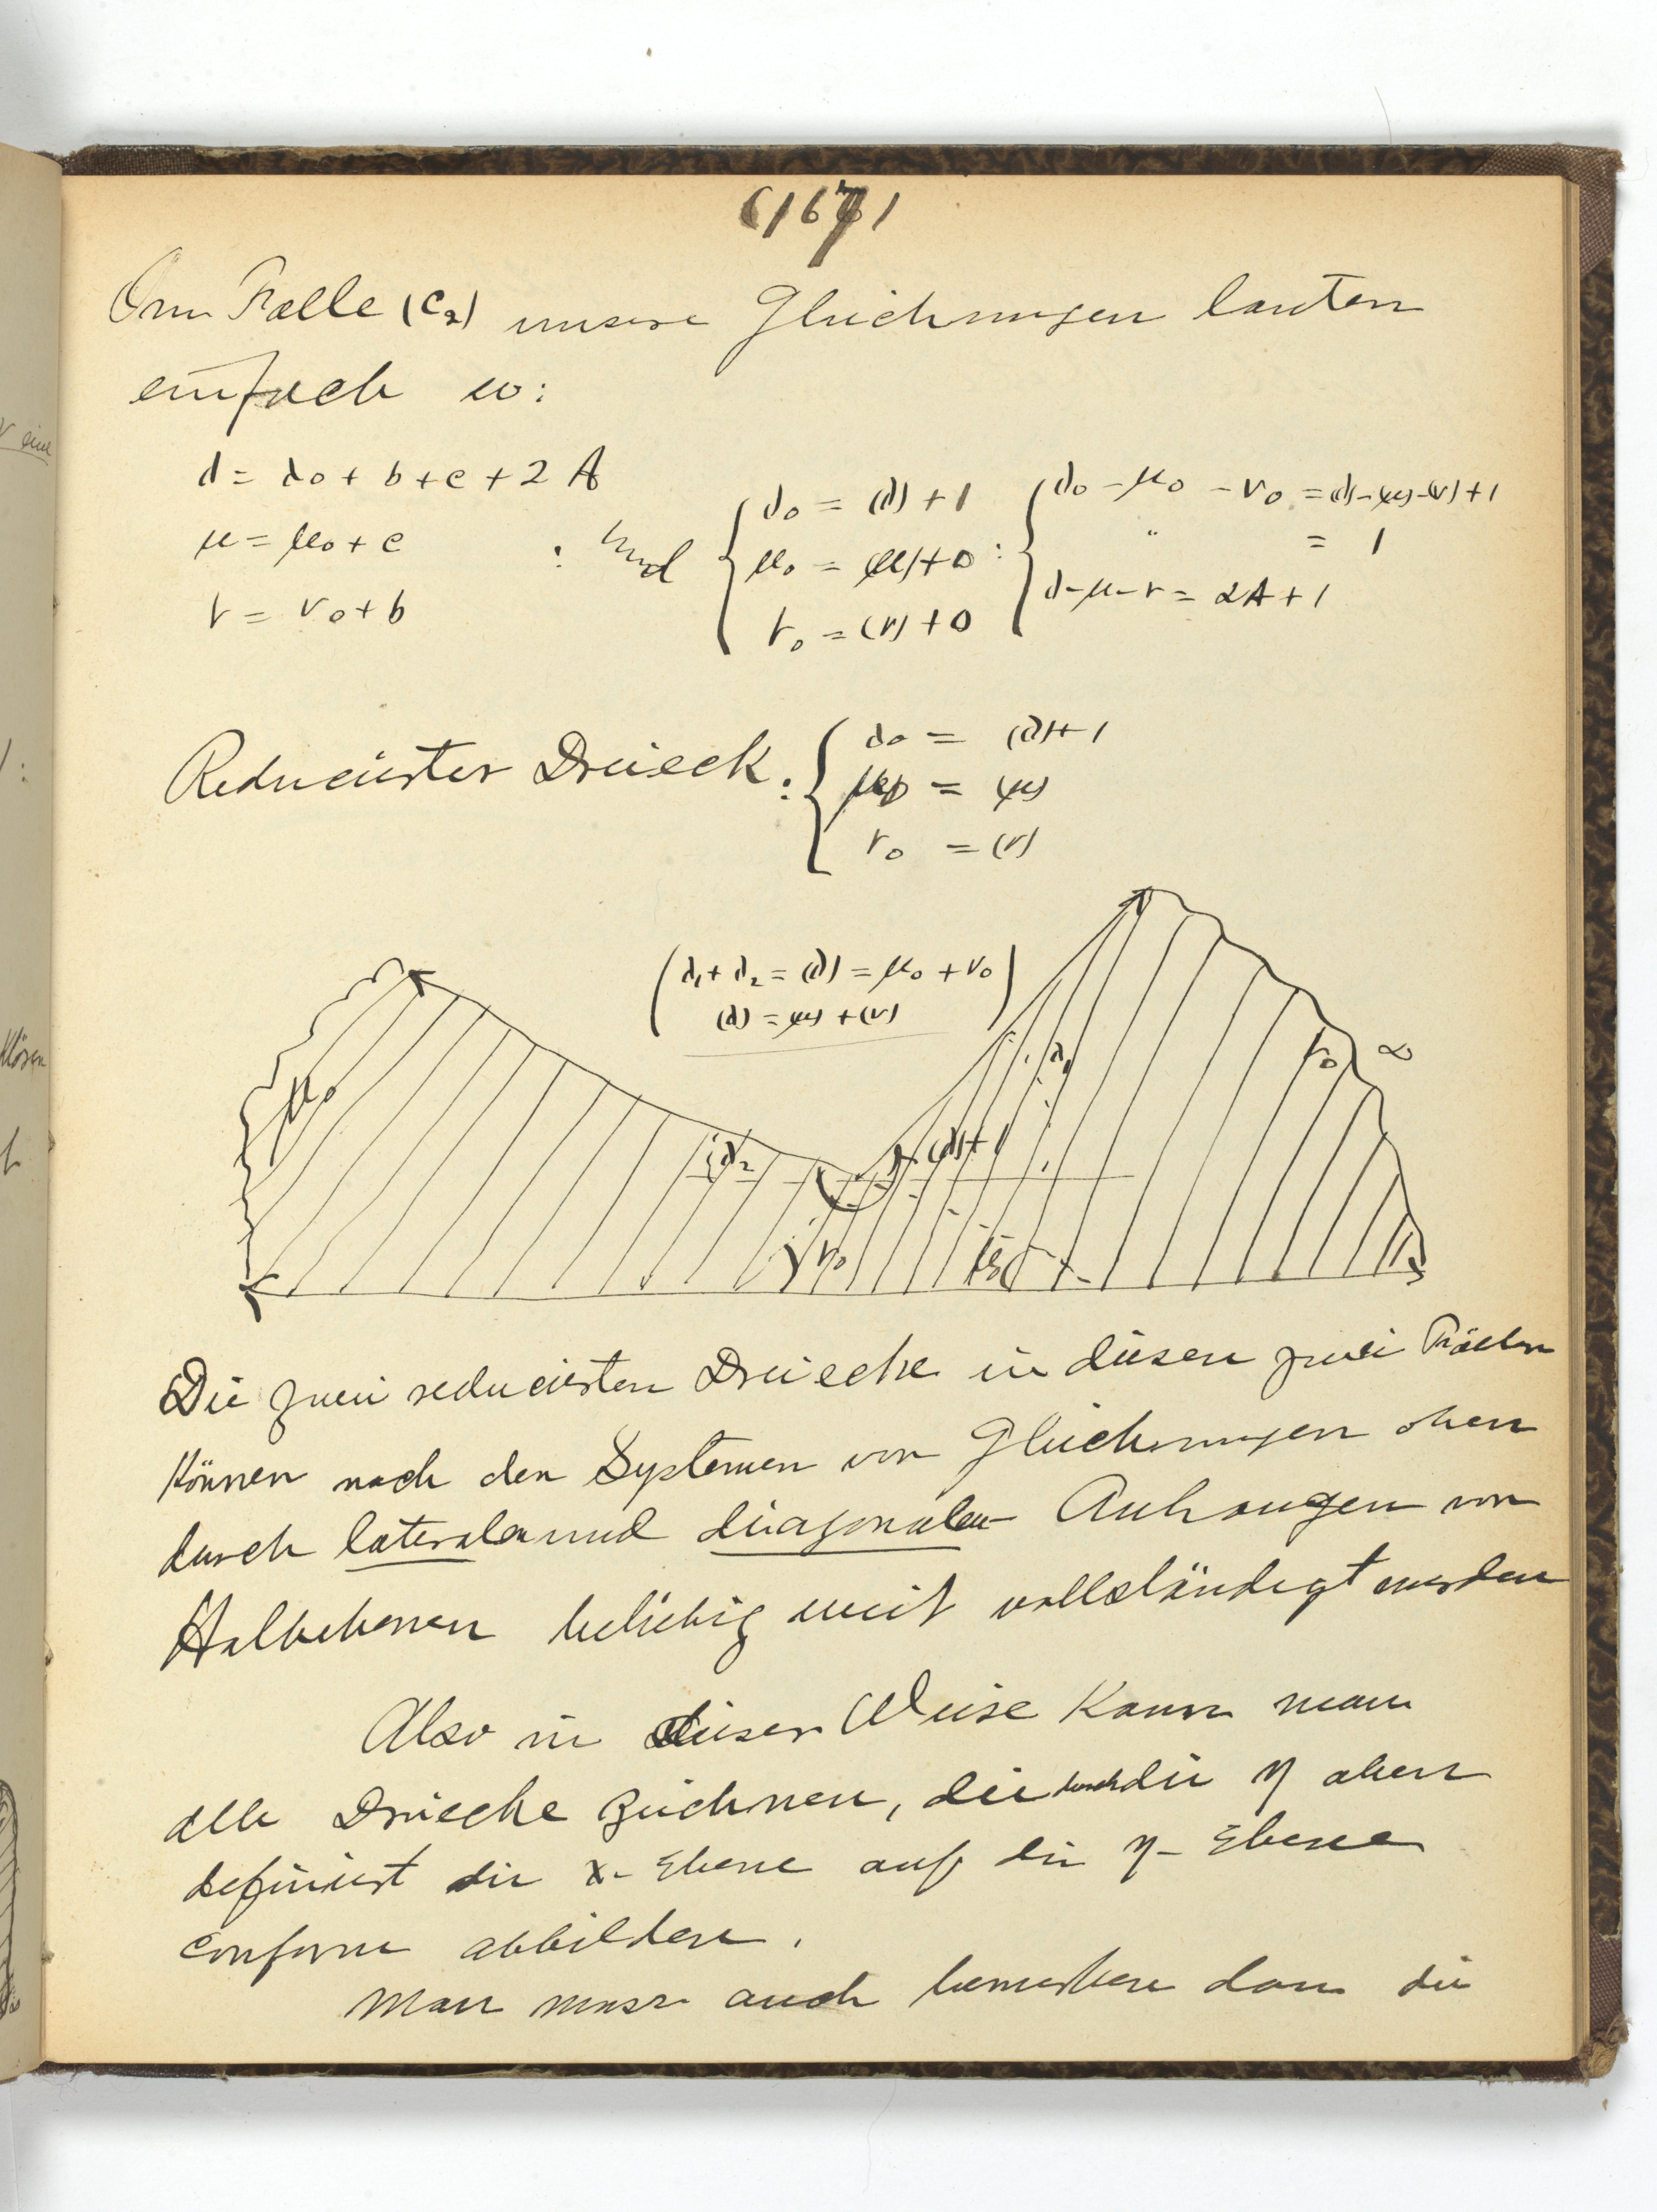 (167)
Im Falle (c₂) unsere Gleichungen lauten
einfach so:
λ = λ₀ + b + c + 2A
μ = μ₀ + c
ν = ν₀ + b
: und
λ₀ = (λ) + 1
μ₀ = (μ) + 0
ν₀ = (ν) + 0
:
λ₀ - μ₀ - ν₀ = (λ)-(μ)-(ν)+1
" = 1
λ-μ-ν = 2A+1
Reducirter Dreieck:
λ₀ = (λ)+1
μ₀ = (μ)
ν₀ = (ν)
(λ₁ + λ₂ = (λ) = μ₀ + ν₀)
(λ) = (μ) + (ν)
μ₀
λ₁
ν₀ ∞
λ₂
(λ)+1
ν₀
Die zwei reducirten Dreiecke in diesen zwei Fällen
können nach den Systemen von Gleichungen oben
durch lateralen und diagonalen Anhangen von
Halbebenen beliebig weit vollständigt werden
Also in dieser Weise kann man
alle Dreiecke zeichnen, die durch die η oben
definirt die x-Ebene auf die η-Ebene
conform abbilden.
Man muss auch bemerken dass die